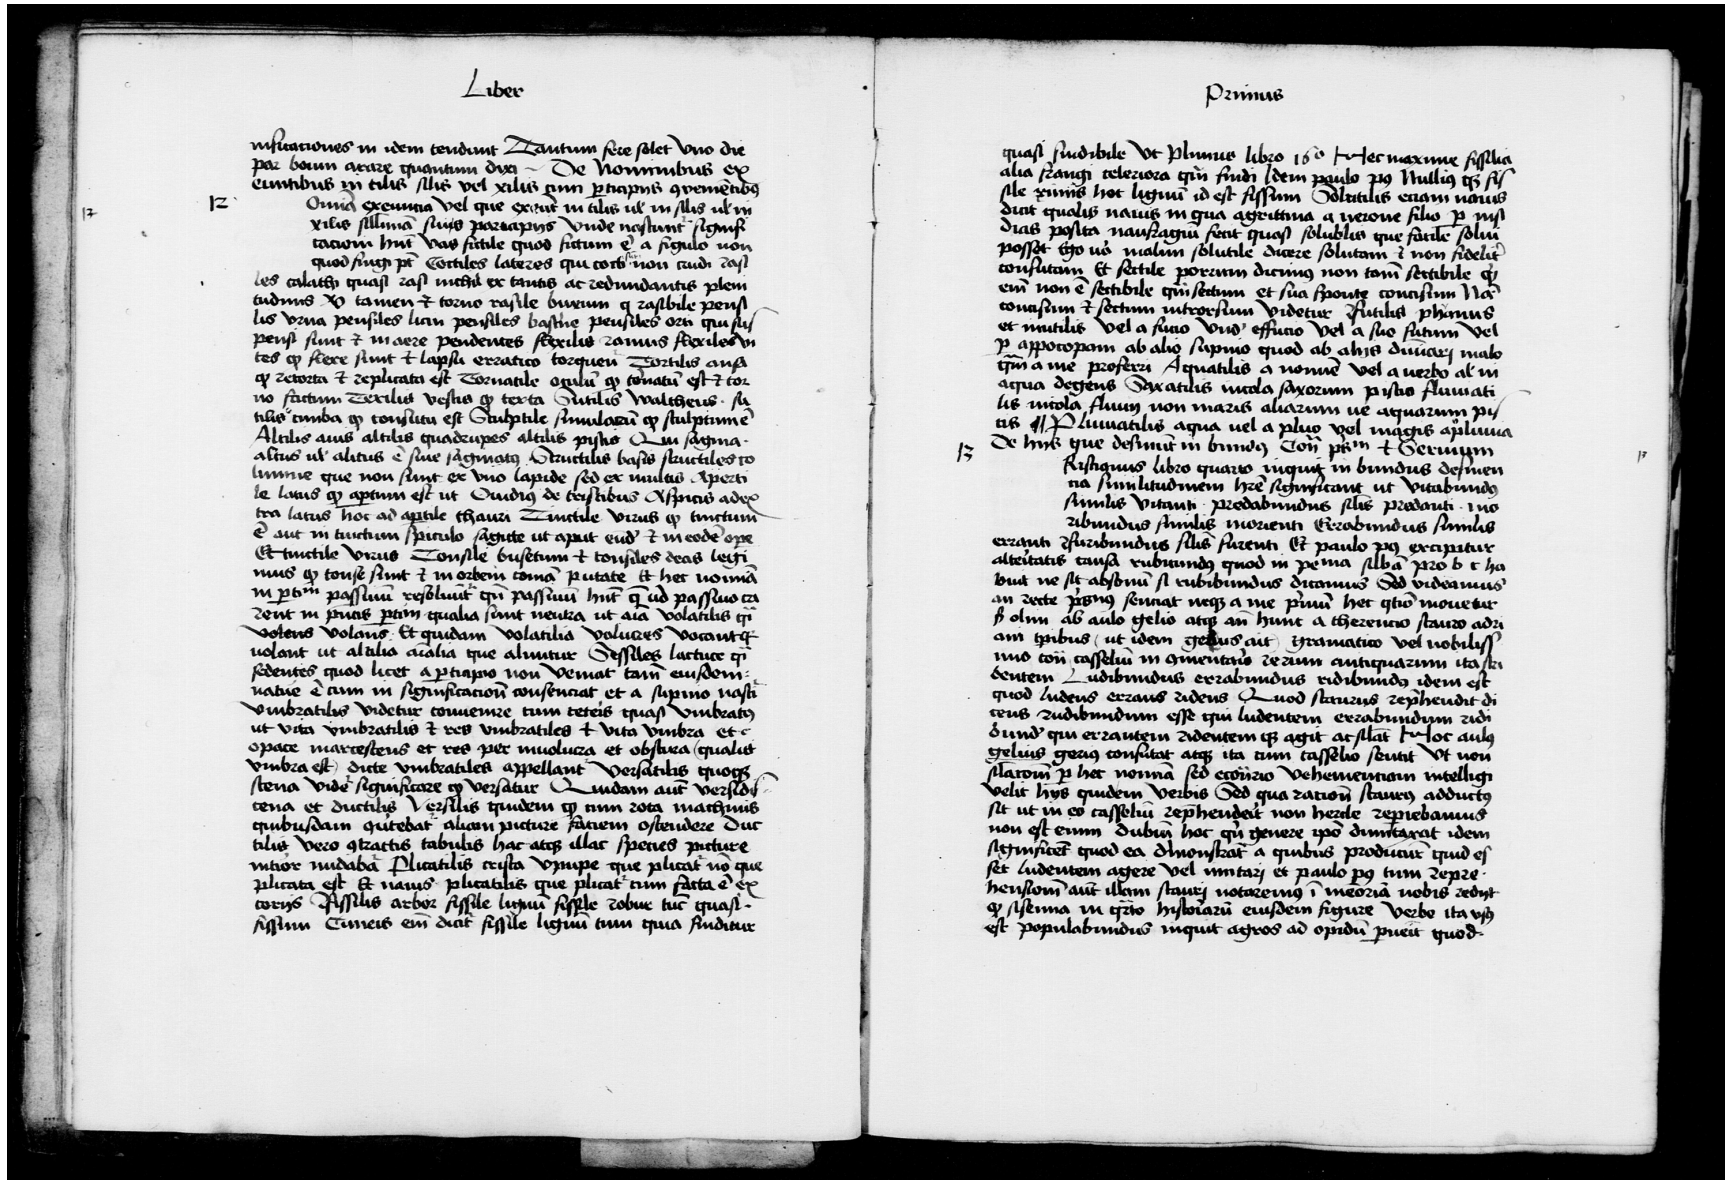 Liber
nificationes in idem tendunt Tantum fere solet vno die
par boum arare quantum dixi De Nominibus ex
euntibus in tilis silis vel xilis cum p̱ticipijs ꝯvenie̅tibꝫ
12 12
Omnia exeuntia vel que exeu̅t in tilis ul' in silis ul' in
xilis sillima̅ suis participijs vnde nascunt᷑ signifi
cacionem hn̅t vas fictile quod fictum e̅ a figulo non
quod fingi pt̅ Coctiles lateres qui cocti non crudi rasi
les calathi quasi rasi nichil ex tantis ac redundantis pleni
tudinis tamen ⁊ torno rasile buxum q rasibile pensi
lis vrna pensiles licin pensiles pensiles orti qui sus
pensi sunt ⁊ in aere pendentes flexilis ramus flexiles vi
tes ꝙ flexe sunt ⁊ lapsu erratico torquen᷑ Tortilis ansa
ꝙ retorta ⁊ replicata est Tornatile ꝙ tornatu̅ est ⁊ tor
no factum Textilis vestis ꝙ texta Sutilis Waltheus su
tilis cimba ꝙ consuta est Sculptile simulacru̅ ꝙ sculptum e̅
Altilis auis altilis quadrupes altilis piscis Qui sagina
altus ul' alitus e̅ siue saginatꝰ Structilis basis structiles co
lumne que non sunt ex vno lapide sed ex multis Aperti
le latus ꝙ ap̱tum est ut Ouidiꝰ de tristibus Aspicis a dex
tra latus hoc ad ap̱tile thauri Tinctile virus ꝙ tinctum
e̅ aut in tinctum spiculo sagitte ut aput eund' ⁊ in eode̅ ope
Et tinctile virus Tonsile busetum ⁊ tonsiles deas legi
mus ꝙ tonse sunt ⁊ in orbem coma̅ putate Et hec nomia̅
in p̱tim passiuu̅ resoluu̅t᷑ qn̅ passiuu̅ hn̅t q̅ u̓o passiuo ca
rent in p̱ntis p̱tim qualia sunt neutra ut aia̅ volatilis q̅i
volens volans Et quidam volatilia volucres vocant q
volant ut altilia a̅ialia que aluntur Sessiles lactuce q̅i
sedentes quod licet a p̱ticipio non veniat tam̅ eiusdem
nature e̅ cum in significacion̅ consenciat et a supino nasci
Vmbratilis videtur convenire cum ceteris quasi vmbratꝰ
ut vita vmbratilis ⁊ res vmbratiles ⁊ vita vmbra et
opace marcescens et res per inuolucra et obscura (qualis
vmbra est) dicte vmbratiles appellant᷑ Versatilis quoqꝫ
scena vide᷑ significare ꝙ versatur Quidam aut̅ versilis
cena et ductilis Versilis quidem ꝙ cum rota machinis
quibusdam ꝯu̓tebat᷑ aliam picture faciem ostendere Duc
tilis vero ꝯtractis tabulis hac atqꝫ illac species picture
nudaba᷑ Plicatilis crista vpupe que plicat᷑ no̅ que
plicata est Et nauis plicatilis que plicat᷑ cum facta e̅ ex
corijs Fissilis arbor fissile lignu̅ fissile robur tuc̅ quasi
fissum Cuneis em̅ dicit᷑ fissile lignu̅ tum quia finditur
Primus
quasi findibile Vt Plinius libro 16º Hec maxime fissilia
alia frangi celeriora qm̅ findi Idem paulo pꝰ Nulliꝰ qꝫ fis
sile nimis hoc lignu̅ id est fissum Solutilis eciam nauis
dicit᷑ qualis nauis in qua agrippina a nerone filio p̱ insi
dias posita naufragiu̅ fecit quasi solubilis que facile solui
posset Ego u̓o malim solutile dicere solutam ⁊ non fidelit᷑
consutam Et sectile porrum dicimꝰ non tam̅ sectibile ꝙ
em̅ non e̅ sectibile qm̅ sectum et sua sponte concisum Na̅
concisum ⁊ sectum introrsum videtur Futilis phanus
et inutilis vel a fucio vnd' effucio vel a suo futum vel
p̱ appocopam ab alio supino quod ab alijs diuucari malo
qm̅ a me proferri Aquatilis a nomi̅e vel a verbo al' in
aqua degens Saxatilis incola saxorum piscis fluuiati
lis incola fluuij non maris aliarum ue aquarum pis
cis Pluuiatilis aqua vel a pluo vel magis a pluuia
De hijs que desinu̅t in bundꝰ Con̅ p̱s̅m ⁊ Seruium
13 13
Priscianus libro quarto inquit in bundus desinen
cia similitudinem hr̅e significant ut vitabundꝰ
similis vitanti predabundus sil̅is predanti Mo
ribundus similis morienti Errabundus similis
erranti Furibundus sil̅is furenti Et paulo pꝰ excipitur
alteritatis causa rubicundꝰ quod in penᵐᵃ silb̅a̅ pro b c ha
buit ne sit absonu̅ si rubibundus dicamus Sed videamus
an recte senciat neqꝫ a me p̓mu̅ hec q̅tio̅ mouetur
s̓ olim ab aulo gelio atqꝫ an̅ hunc a therencio scauro adri
ani tp̅ibus (ut idem gelius ait) gramatico vel nobiliss
imo con̅ casseliu̅ in ꝯmentarijs rerum antiquarum ita
dentem Ludibundus errabundus ridibundꝰ idem est
quod ludens errans ridens Quod scaurus rep̱hendit di
cens ludibundum esse qui ludentem errabundum ridi
bund' qui errantem ridentem qꝫ agit ac sil̅at Hoc aulꝰ
gelius geriꝰ confutat atqꝫ ita cum casselio sentit Vt non
sil̅acom̅ p̱ hec nomia̅ sed econ̅rio vehementiam intelligi
velit hijs quidem verbis Sed qua ration̅ scaurꝰ adductꝰ
sit ut in eo casseliu̅ rep̱henderit non hercle rep̱iebamus
non est enim dubiu̅ hoc qn̅ genere ipo̅ dumtaxat idem
significet᷑ quod ea demonstrat᷑ a quibus producit᷑ quid es
set ludentem agere vel imitari et paulo pꝰ cum repre
hensionem aut̅ illam scauri notaremꝰ i̅ meoria̅ nobis redijt
ꝙ sisenna in q̓rto historiaru̅ eiusdem figure verbo ita vsꝰ
est populabundus inquit agros ad opidu̅ p̱uenit quod